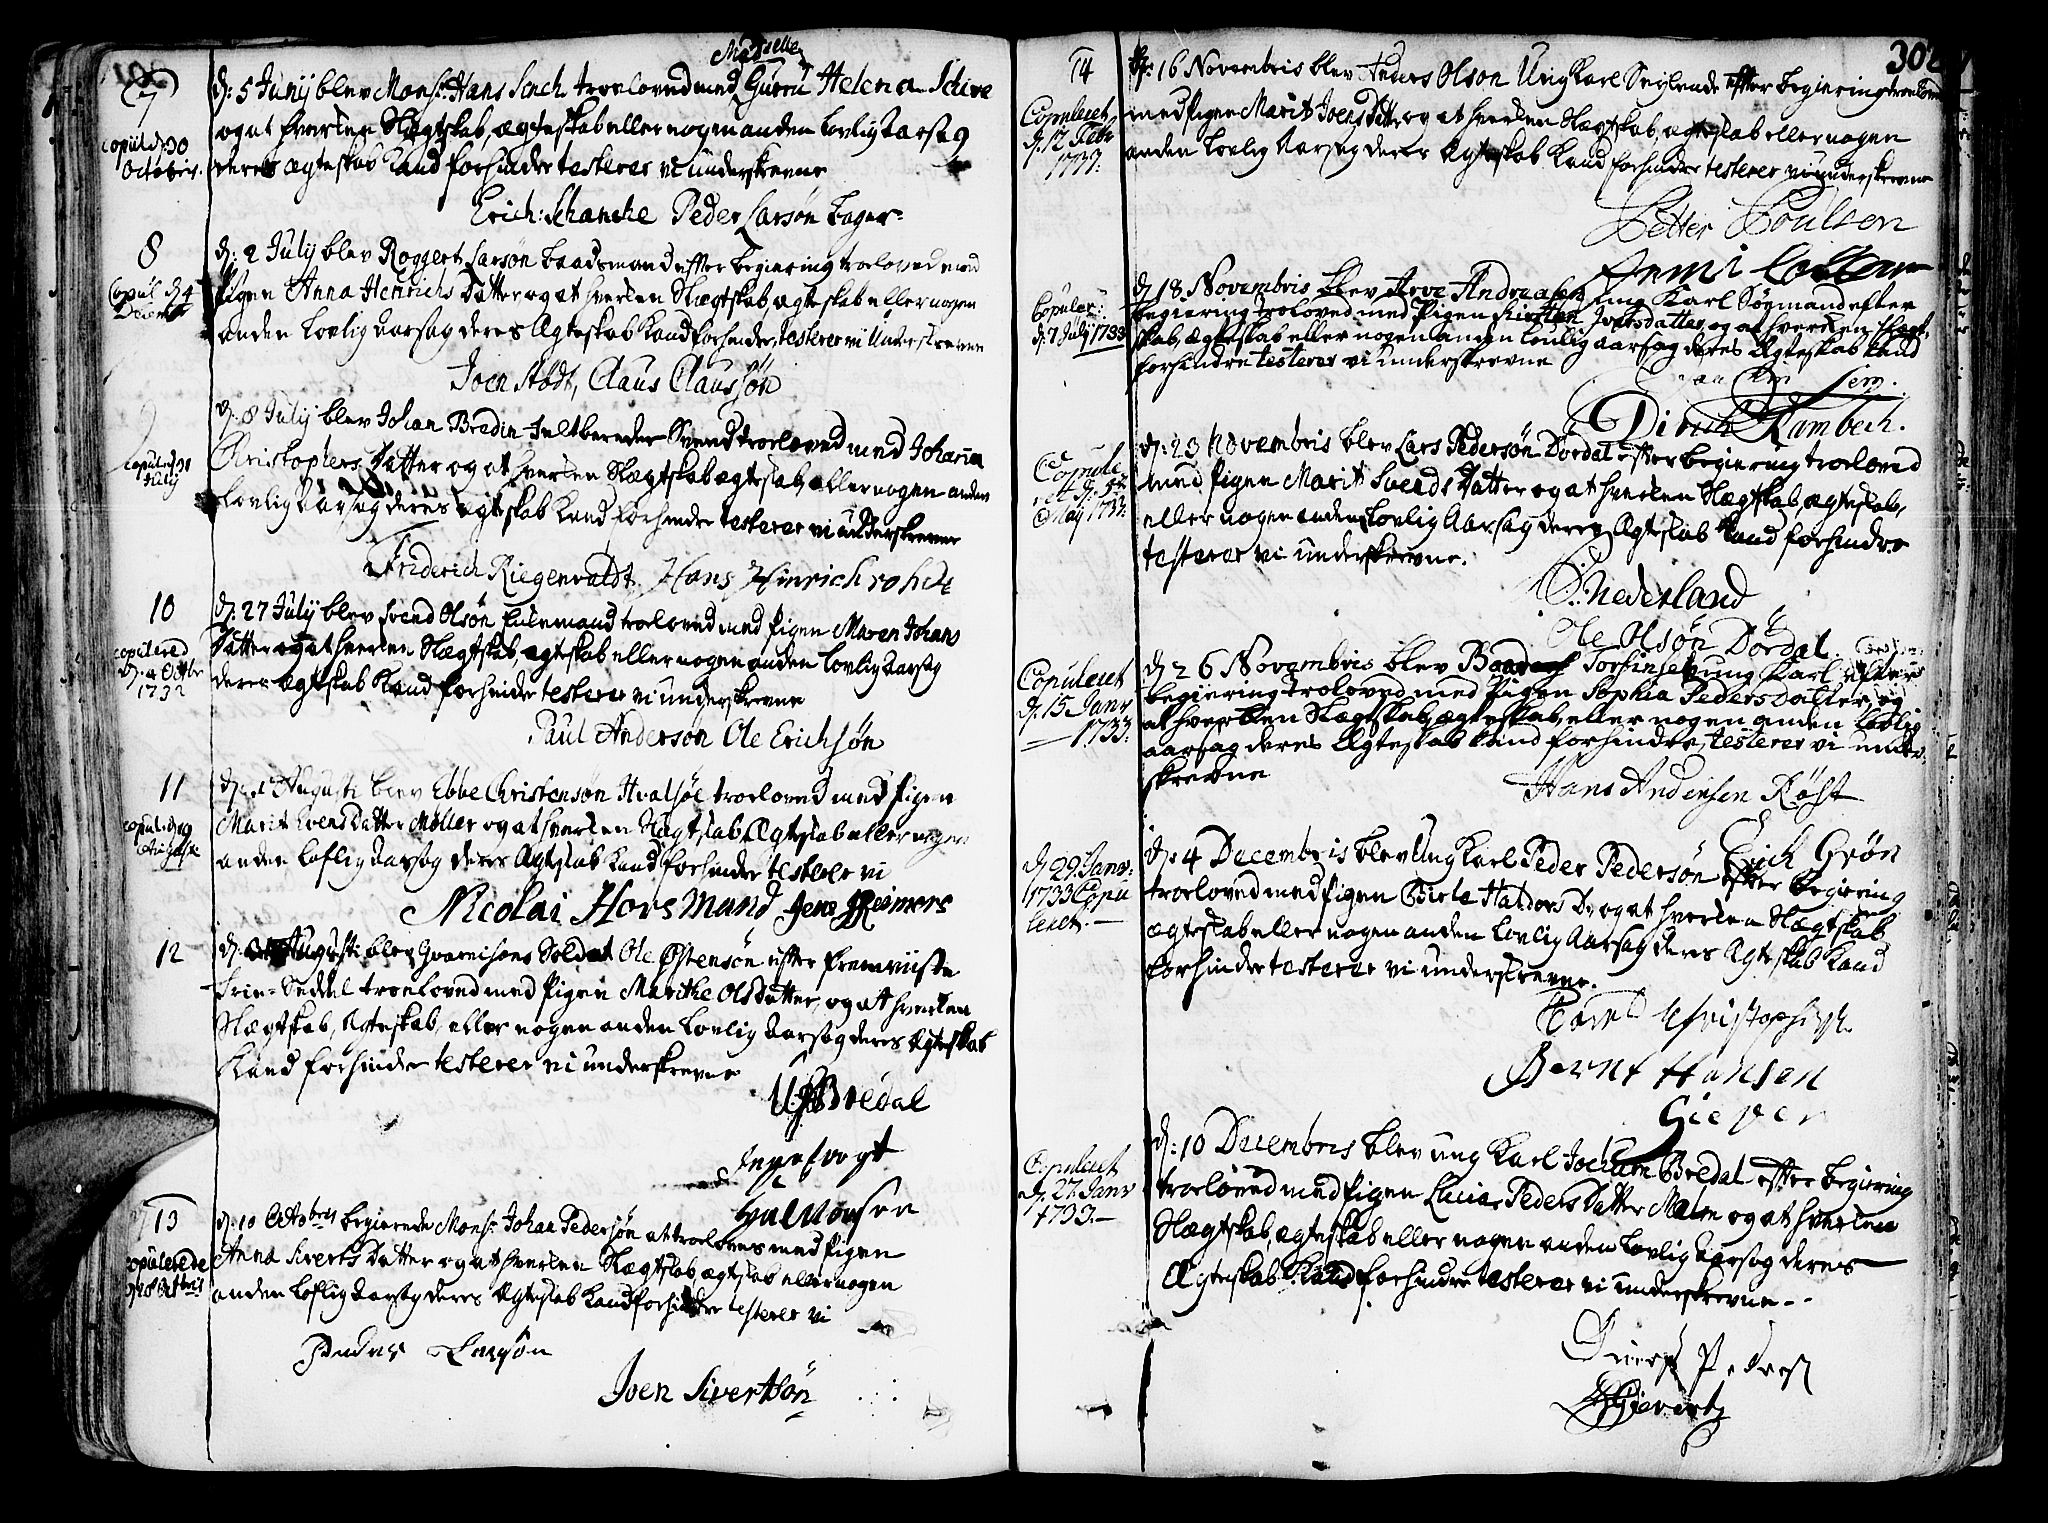 7
Copul d 30
Octobris.
Madselle
d: 5 Junij blev Mons: Hans Senck troeloved med Guru Helena Schive
og at hverken Slægtskab, ægteskab eller nogen anden Lovlig Aarsag
deres ægteskab Kand forhinder testerer vi underskrevne
Erich: Schancke Peder Larsøn Bager
8
Copul d 4
Decemb
d: 2 Julij blev Roggert Larsøn Baadsmand efter begiering troeloved med
Pigen Anna Henrichs Datter og at hverken Slægtskab, ægteskab eller nogen
anden Lovlig Aarsag deres Ægteskab Kand forhinder, testerer vi Underskrevne
Joen Stødt, Claus Claussøn
9
copul d 30
Julij
d: 8 Julij blev Johan Bredin Feltbereder Svend troeloved med Johana
Christophers Datter og at hverken Slægtskab ægteskab, eller nogen anden
Lovlig Aarsag deres ægteskab Kand forhinder testerer vi underskrevne
Friderich Riegervaldt Hans Hinrich rohde
10
copulered
d: 4 Octbr
1732
d: 27 Julij blev Svend Olsøn troeloved med Pigen Maren Johans
Datter og at hverken Slægtskab, ægteskab eller nogen anden Lovlig Aarsag
deres ægteskab Kand forhinder testerer vi underskrevne
Paul Anderson Ole Erichsøn
11
copul: d 19
Augusti
d: 1 Augusti blev Ebbe Christensøn Hvalsøe troeloved med Pigen
Marit Evens Datter Møller og at hverken Slægtskab, Ægteskab eller nogen
anden Loflig Aarsag deres Ægteskab Kand forhinder testerer vi
Nicolai Horsmand Jens Reimers
12
d: Augusti blev Gvarnisons Soldat Ole Østensøn efter fremviiste
Frie-Seddel troeloved med Pigen Marithe Olsdatter, og at hverken
Slægtskab, Ægteskab, eller nogen anden Lovlig Aarsag deres Ægteskab
Kand forhinder testerer vi underskrevne
Bredal
13
copulerede
d: 28 Octbris
d: 10 Octobris begierede Mons: Johan Pedersøn at troeloves med Pigen
Anna Siverts Datter og at hverken Slægtskab, ægteskab eller nogen
anden Loflig Aarsag deres Ægteskab Kand forhinder testerer vi
Peder Larsøn
Joen Sivertsøn
302
14
Copuleret
d. 12 Febr
1733.
d: 16 Novembris blev Anders Olson Ung Karl Seylende efter begiering troeloved
med Pigen Marit Joens Datter og at hverken Slægtskab, ægteskab eller nogen
anden Lovlig Aarsag deres Ægteskab Kand forhindre testerer vi underskrevne
Petter Poulsen
Copuler:
d. 7 Julij 1733
d 18. Novembris blev Arve Andreasen ung Karl Søemand efter
begiering troloved med Pigen Kirsten Iversdatter og at hverken Slægt-
skab, ægteskab eller nogen anden Lovlig aarsag deres Ægteskab Kand
forhindre testerer vi underskrevne
Dirich Rambech.
Copule-
ret d. 5te
Maij 1733.
d: 23 Novembris blev Lars Pedersøn Dordal efter begiering troeloved
med Pigen Marit Svends Datter og at hverken Slægtskab, ægteskab,
eller nogen anden Lovlig Aarsag deres Ægteskab Kand forhindre
testerer vi underskrevne.
Nederland
Ole Olsøn Dørdal.
Copuleret
d. 15 Janv
1733:
d 26 Novembris blev Torfinsen ung Karl efter
begiering troloved med Pigen Sophia Pedersdatter, og
at hverken Slægtskab, ægteskab, eller nogen anden Lovlig
aarsag deres Ægteskab Kand forhindre, testerer vi under-
skrevne
Hans Andersen Røst
Erich Grøn
d. 29. Janv:
1733 Copu
leret.
d. 4 Decembris blev Ung Karl Peder Pedersøn efter begiering
troeloved med Pigen Birte Haldors D og at hverken Slægtskab
ægteskab eller nogen anden Lovlig Aarsag deres Ægteskab Kand
forhinder testerer vi underskrevne.
Christophersen
Bernt Hansen
Copuleret
d. 27. Janv
1733.
d: 10 Decembris blev ung Karl Jochum Bredal efter begiering
troeloved med Pigen Lucia Peders Datter Malm og at hverken
Slægtskab, ægteskab eller nogen anden Lovlig Aarsag deres
Ægteskab Kand forhindre testerer vi underskrevne
Siverts